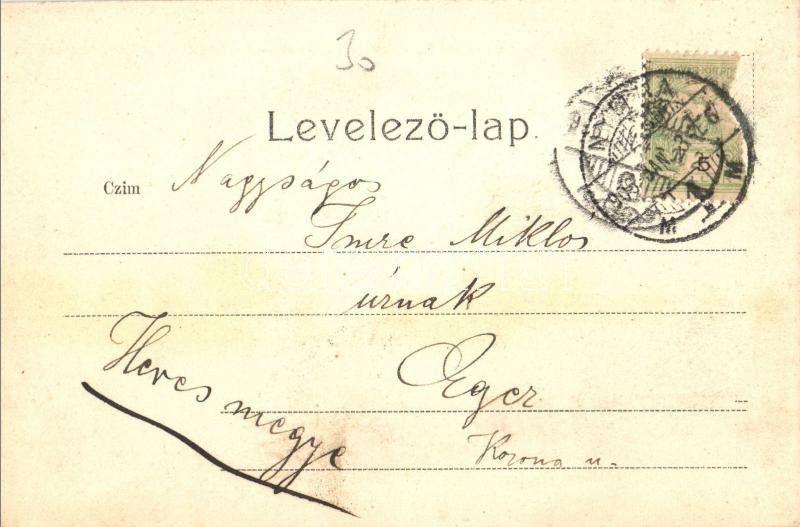 30
Levelező-lap.
Czim Nagyságos
Imre Miklos
úrnak
Eger
Heves megye
Korona u.